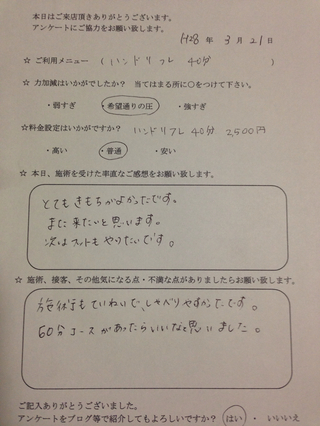 本日はご来店頂きありがとうございます。
アンケートにご協力をお願い致します。
H28 年 3 月 21 日
☆ ご利用メニュー ( ハンドリフレ 40分 )
☆ 力加減はいかがでしたか? 当てはまる所に○をつけて下さい。
・弱すぎ ・希望通りの圧 ・強すぎ
☆料金設定はいかがですか? ハンドリフレ 40分 2,500円
・高い ・普通 ・安い
☆ 本日、施術を受けた率直なご感想をお願い致します。
とてもきもちがよかったです。
また来たいと思います。
次はフットもやりたいです。
☆ 施術、接客、その他気になる点・不満な点がありましたらお願い致します。
施術もていねいで、しゃべりやすかったです。
60分コースがあったらいいなと思いました。
ご記入ありがとうございました。
アンケートをブログ等で紹介してもよろしいですか? はい ・ いいいえ